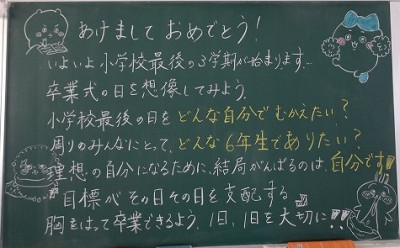 あけまして おめでとう！
いよいよ小学校最後の3学期が始まります。
卒業式の日を想像してみよう。
小学校最後の日をどんな自分でむかえたい？
周りのみんなにとって、どんな6年生でありたい？
理想の自分になるために、結局がんばるのは、自分です!!
目標がその日その日を支配する
胸をはって卒業できるよう、1日、1日を大切に!!